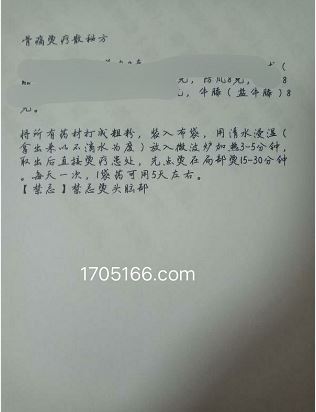 骨痛烫疗散秘方
元，防风8元， 8
，牛膝（盐牛膝）8
元。
将所有药材打成粗粉，装入布袋，用清水浸湿（
拿出来以不滴水为度）放入微波炉加热3-5分钟，
取出后直接烫疗患处，先点烫在局部烫15-30分钟
。每天一次，1袋药可用5天左右。
【禁忌】禁忌烫头脑部
1705166.com